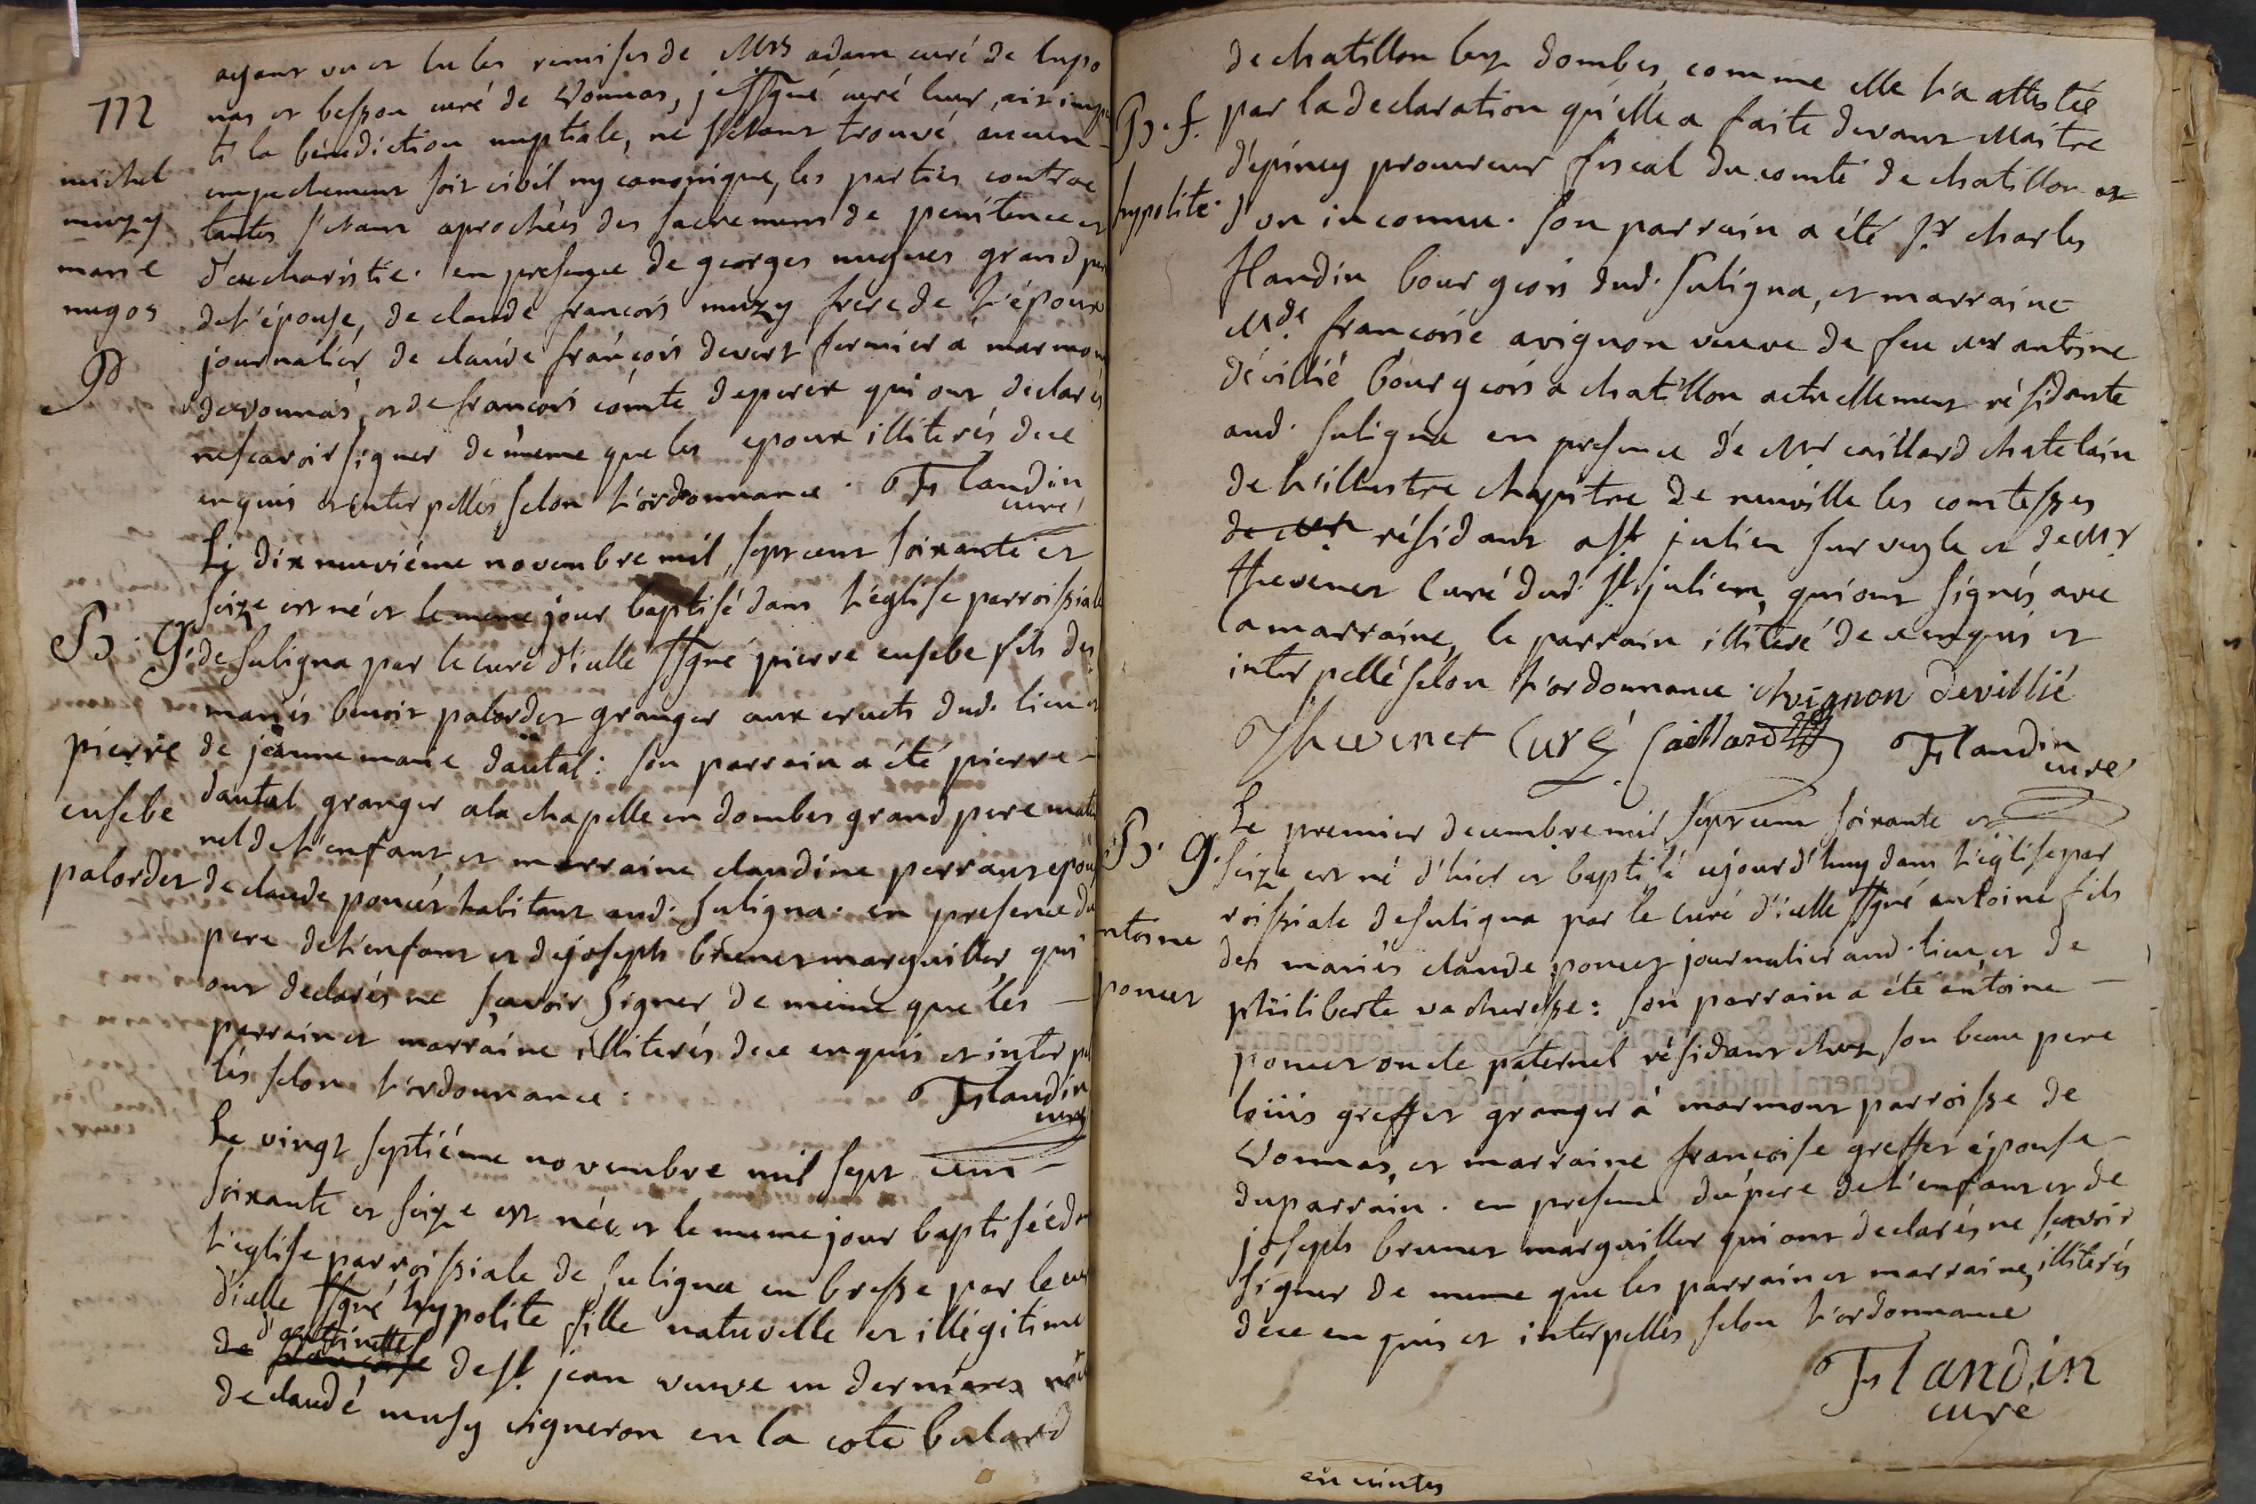 ayant vu et lu les remises de Mrs adam curé de lupo
nas et besson curé de Vonnas, je ssgné curé leur ait imp
ti la bénédiction nuptiale, ne s'étant trouvé aucun
empechement soit civil ny canonique, les parties contrac
tantes s'étant aprochées des sacremens de penitence et
d'eucharistie. en presence de georges nugues grand pere
de l'épouse, de claude francois muzy frere de l'époux
journalier, de claude françois devert fermier à marmont
de vonnas, et de francois comte de perex qui ont déclarés
ne scavoir signer de meme que les epoux illiterés de ce
enquis et interpellés selon l'ordonnance. Flandin
curé
112
michel
muzy
marie
nugos
Le dix neuviéme novembre mil sept cent soixante et
seize est né et le meme jour baptisé dans l'église parroissiale
B. G. de suligna par le curé d'icelle ssgné pierre eusebe fils des
mariés benoit palordet granger aux cruets dud. lieu et
de jeanne marie dautal: son parrain a été pierre
dautal granger a la chapelle en dombes grand pere mater
nel de l'enfant et marraine claudine perraut epouse
de claude poncet habitant aud. suligna. en presence du
pere de l'enfant et de joseph brunet marguiller qui
ont declarés ne scavoir signer de meme que les
parrain et marraine illiterés de ce enquis et interpel
lés selon l'ordonnance. Flandin
curé
pierre
eusebe
palordet
Le vingt septiéme novembre mil sept cent
soixante et seize est née et le meme jour baptisée dans
l'eglise parroissiale de suligna en bresse par le curé
d'icelle ssgné hypolite fille naturelle et illégitime
d'antinette
de françoise de st. jean veuve en dernieres
de claude musy vigneron en la cote
de chatillon lez dombes, comme elle l'a attestée
par la declaration qu'elle a faite devant Maitre
d'épiney procureur fiscal du comté de chatillon et
d'un inconnu. son parrain a été sr. charles
flandin bourgeois dud. suligna, et marraine
Mde. francoise avignon veuve de feu mr antoine
dévillié bourgeois a chatillon actuellement résidante
aud. suligna en presence de Mr caillard chatelain
de l'illustre chapitre de neuville les comtesses
de Mr. résidant a st. julien sur veyle et de Mr
thevenet curé dud. st. julien, qui ont signés avec
la marraine, le parrain illiteré de ce enquis et
interpellé selon l'ordonnance. Avignon devillié
Thevenet Curé Caillard Flandin
curé
B. f.
hypolite
Le premier decembre mil sept cent soixante et
seize est né d'hier et baptisé aujourd'huy dans l'église par
roissiale de suligna par le curé d'icelle ssgné antoine fils
des mariés claude poncet journalier aud. lieu, et de
philiberte vacheresse: son parrain a été antoine
poncet oncle paternel résidant chez son beau pere
loüis greffet granger à marmont parroisse de
Vonnas, et marraine françoise greffet épouse
du parrain. en presence du pere de l'enfant et de
joseph brunet marguiller qui ont declarés ne scavoir
signer de meme que les parrain et marraine illiterés
de ce enquis et interpellés selon l'ordonnance
Flandin
curé
B. G.
ntoine
poncet